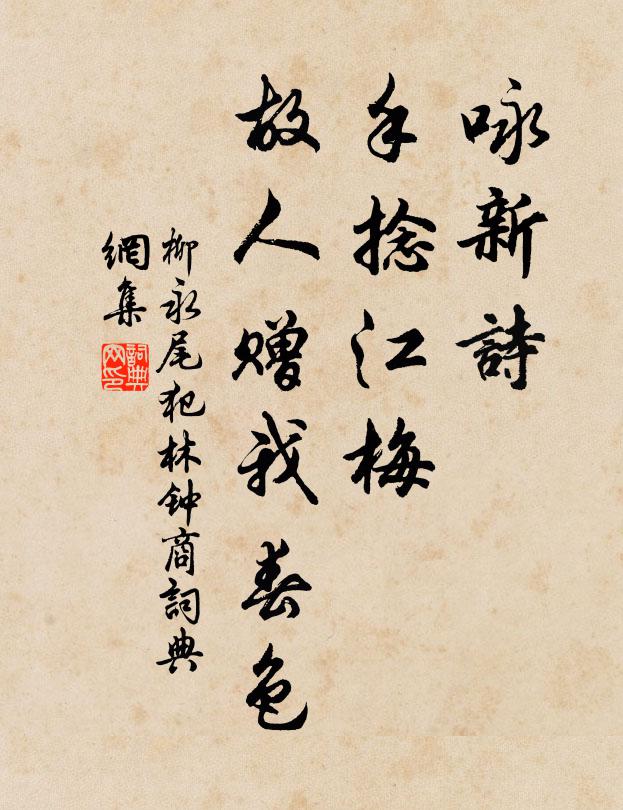 咏新詩
手捻江梅
故人贈我春色
柳永尾犯林钟商詞典
網集
詞典
网印